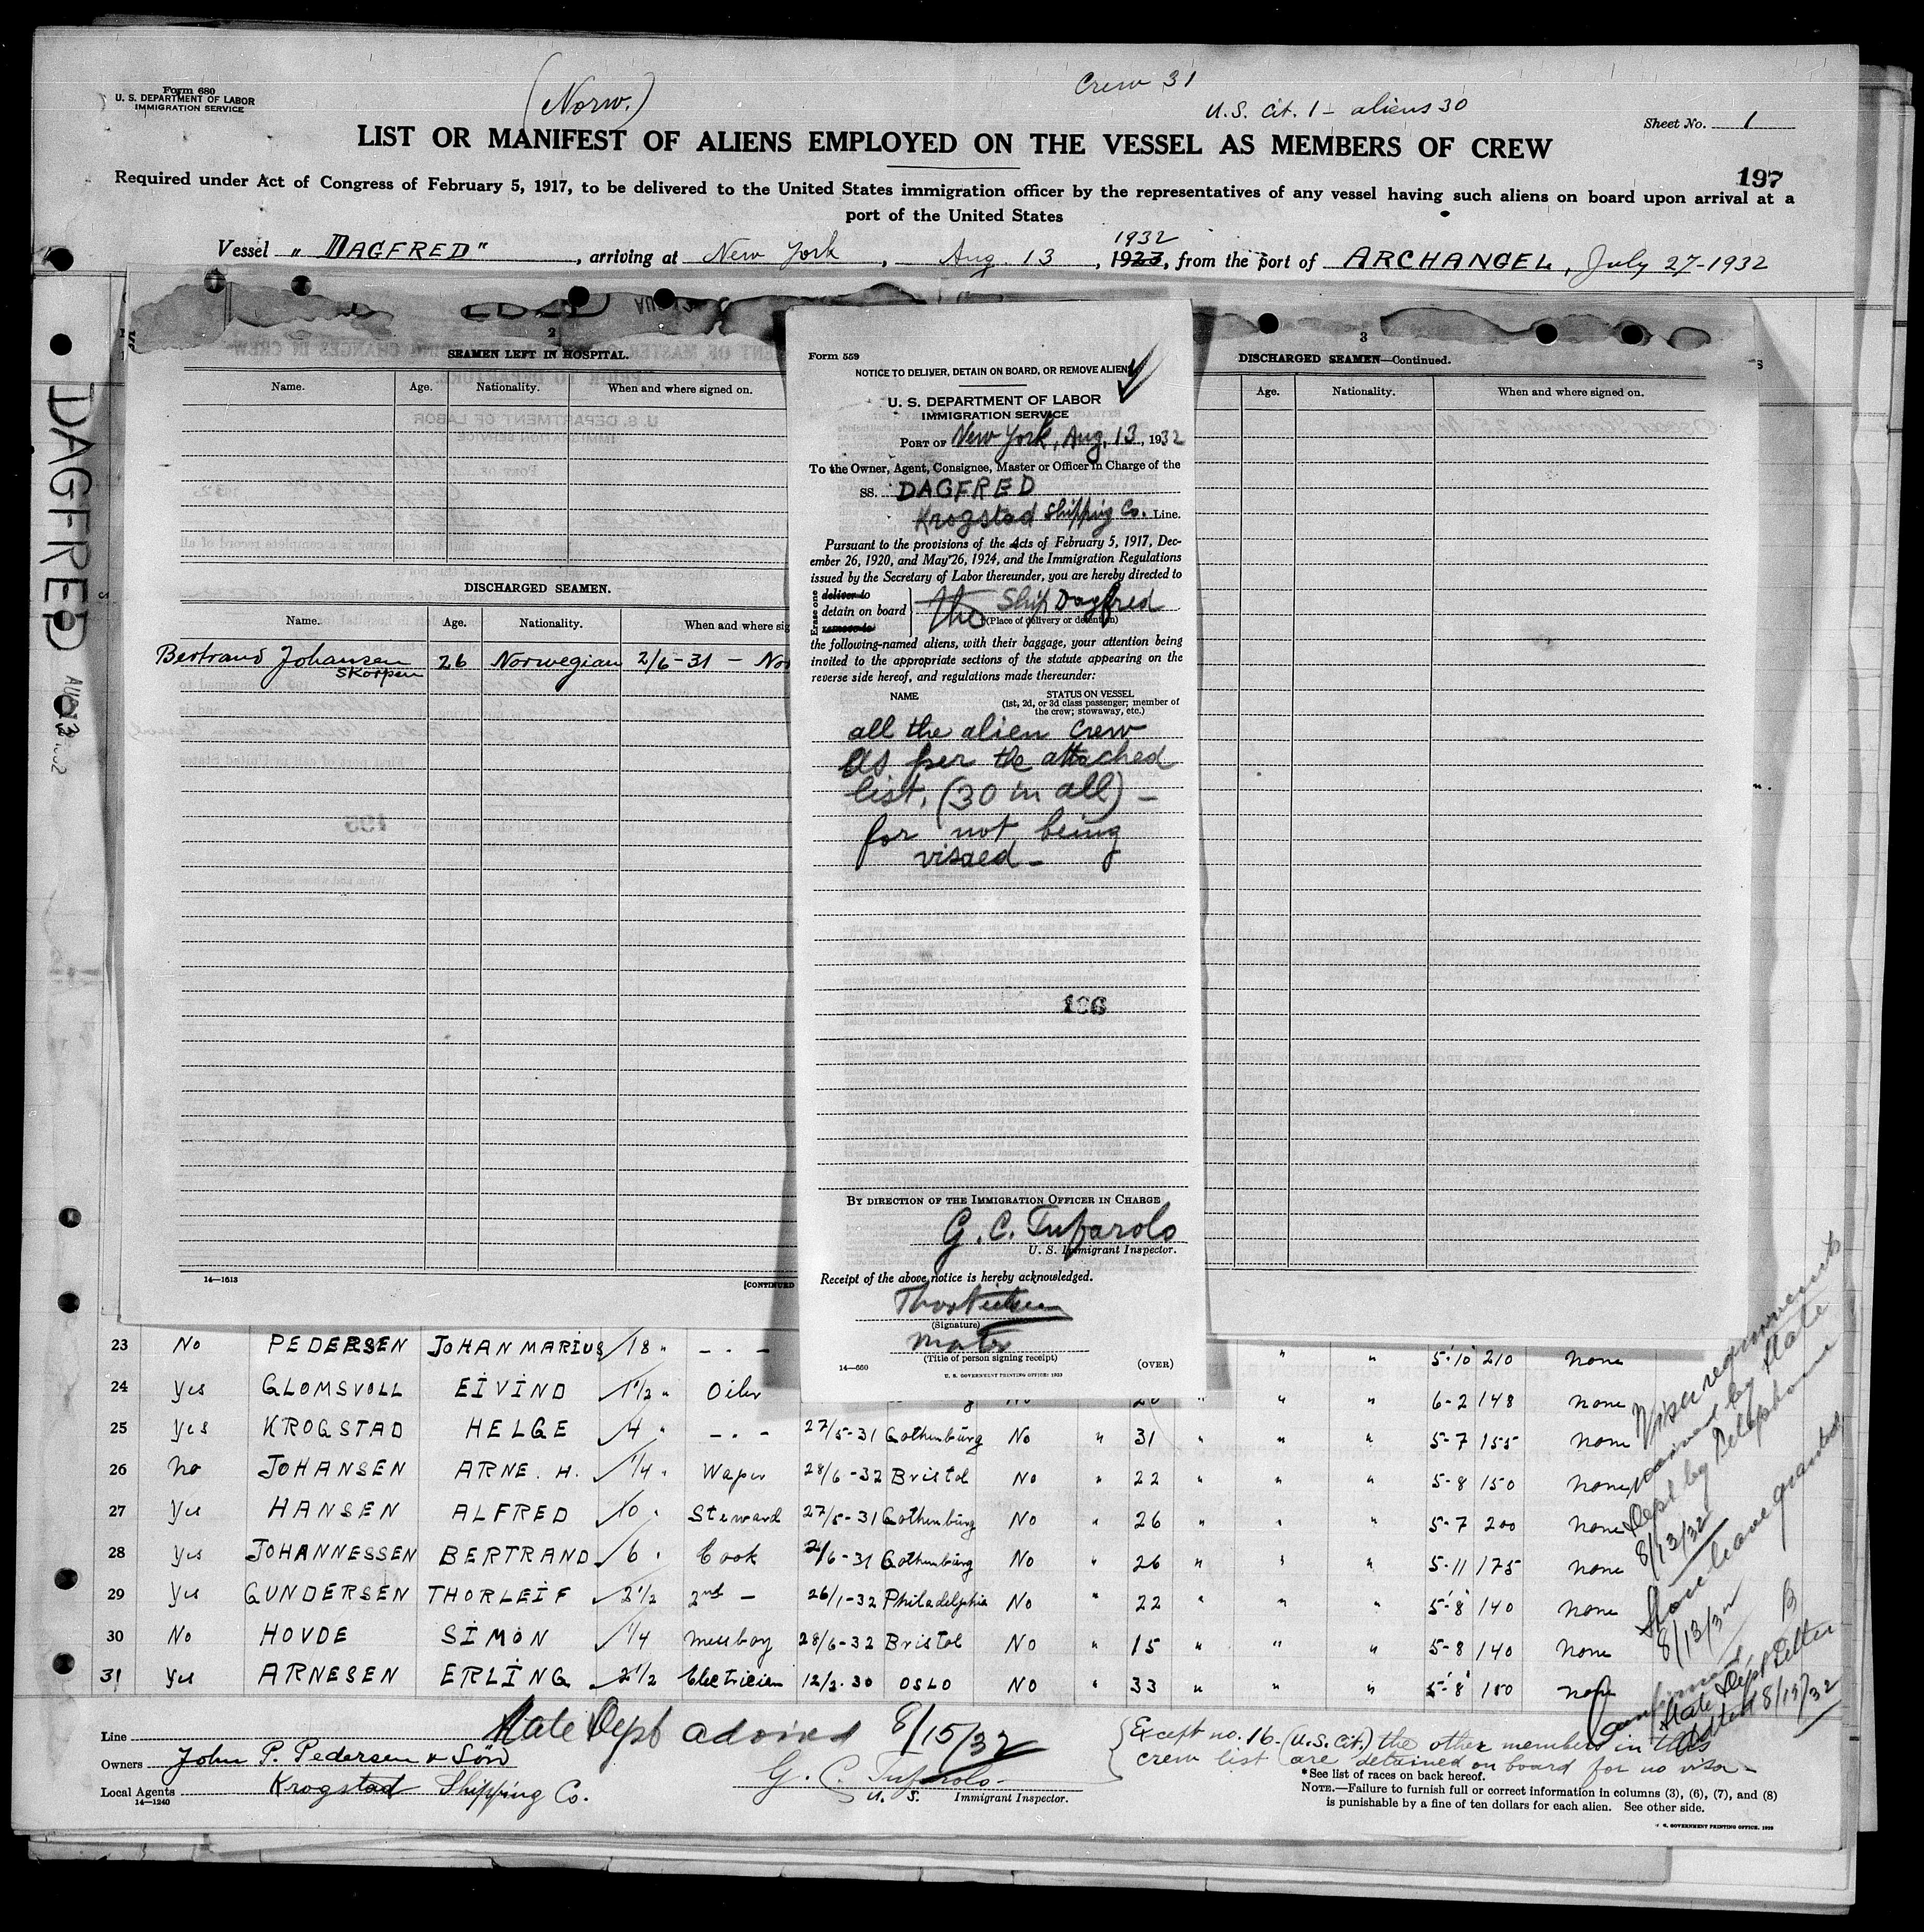 Form 680
U. S. DEPARTMENT OF LABOR
IMMIGRATION SERVICE
(Norw.)
Crew 31
U.S. Cit. 1 - aliens 30
Sheet No. 1
LIST OR MANIFEST OF ALIENS EMPLOYED ON THE VESSEL AS MEMBERS OF CREW
197
Required under Act of Congress of February 5, 1917, to be delivered to the United States immigration officer by the representatives of any vessel having such aliens on board upon arrival at a
port of the United States
Vessel "DAGFRED", arriving at New York, Aug. 13, 1923, 1932 from the port of ARCHANGEL, July 27-1932
DAGFRED
2
SEAMEN LEFT IN HOSPITAL.
Name. Age. Nationality. When and where signed on.
DISCHARGED SEAMEN.
Name. Age. Nationality. When and where sig
Bertrand Johansen Skorpen 26 Norwegian 2/6-31 - Nor
14—1613
[CONTINUED
Form 559
NOTICE TO DELIVER, DETAIN ON BOARD, OR REMOVE ALIENS
U. S. DEPARTMENT OF LABOR
IMMIGRATION SERVICE
PORT OF New York, Aug. 13, 1932
To the Owner, Agent, Consignee, Master or Officer in Charge of the
SS. DAGFRED
Krogstad Shipping Co. Line.
Pursuant to the provisions of the Acts of February 5, 1917, Dec-
ember 26, 1920, and May 26, 1924, and the Immigration Regulations
issued by the Secretary of Labor thereunder, you are hereby directed to
Erase one
deliver to
detain on board the Ship Dagfred
remove to
(Place of delivery or detention)
the following-named aliens, with their baggage, your attention being
invited to the appropriate sections of the statute appearing on the
reverse side hereof, and regulations made thereunder:
NAME STATUS ON VESSEL
(1st, 2d, or 3d class passenger; member of
the crew; stowaway, etc.)
all the alien crew
as per the attached
list, (30 in all) -
for not being
visaed -
196
BY DIRECTION OF THE IMMIGRATION OFFICER IN CHARGE
G. C. Tufarolo
U. S. Immigrant Inspector.
Receipt of the above notice is hereby acknowledged.
(Signature)
(Title of person signing receipt)
14—560
(OVER)
U. S. GOVERNMENT PRINTING OFFICE: 1929
3
DISCHARGED SEAMEN—Continued.
Age. Nationality. When and where signed on.
23 No PEDERSEN JOHAN MARIUS 18 " - . - " " 5-10 210 none
24 Yes GLOMSVOLL EIVIND 1 1/2 " Oiler " " " 6-2 148 none
25 Yes KROGSTAD HELGE 4 " - . - 27/5-31 Gothenburg No " 31 " " " 5-7 155 none
26 No JOHANSEN ARNE. H. 1/4 " Wiper 28/6-32 Bristol No " 22 " " " 5-8 150 none
27 Yes HANSEN ALFRED 10 " Steward 27/5-31 Gothenburg No " 26 " " " 5-7 200 none
28 Yes JOHANNESSEN BERTRAND 6 " Cook 2/6-31 Gothenburg No " 26 " " " 5-11 175 none
29 Yes GUNDERSEN THORLEIF 2 1/2 2nd — 26/1-32 Philadelphia No " 22 " " " 5-8 140 none
30 No HOVDE SIMON 1/4 Messboy 28/6-32 Bristol No " 15 " " " 5-8 140 none
31 Yes ARNESEN ERLING 2 1/2 Electrician 12/2-30 OSLO NO " 33 " " " 5-8 180 none
Visa requirements
waived by State
Dept by telephone
8/13/32
Shore leave granted
8/13/32
confirmed
State Dept letter
dated 8/13/32
State Dept advised 8/15/32
Line
Owners John P. Pedersen & Son
Local Agents Krogstad Shipping Co.
14—1240
G. C. Tufarolo
U. S. Immigrant Inspector.
Except no. 16 - (U.S. Cit.) the other members in this
crew list are detained on board for no visa -
*See list of races on back hereof.
NOTE.—Failure to furnish full or correct information in columns (3), (6), (7), and (8)
is punishable by a fine of ten dollars for each alien. See other side.
GOVERNMENT PRINTING OFFICE: 1929